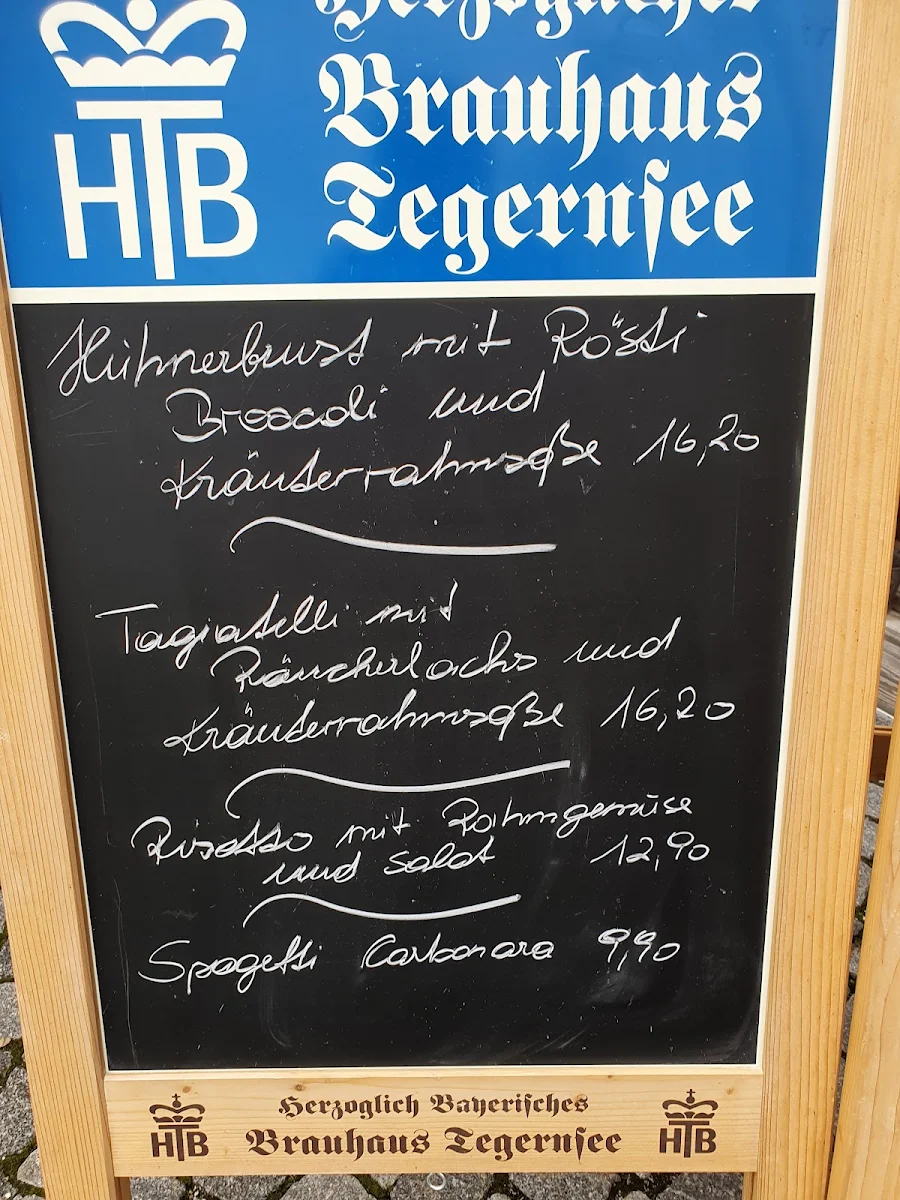 Herzogliches
HTB
Brauhaus
Tegernsee
Hühnerbrust mit Rösti
Broccoli und
Kräuterrahmsoße 16,20
Tagiatelli mit
Räucherlachs und
Kräuterrahmsoße 16,20
Risotto mit Rahmgemüse
und Salat 12,90
Spagetti Carbonara 9,90
HTB
Herzoglich Bayerisches
Brauhaus Tegernsee
HTB